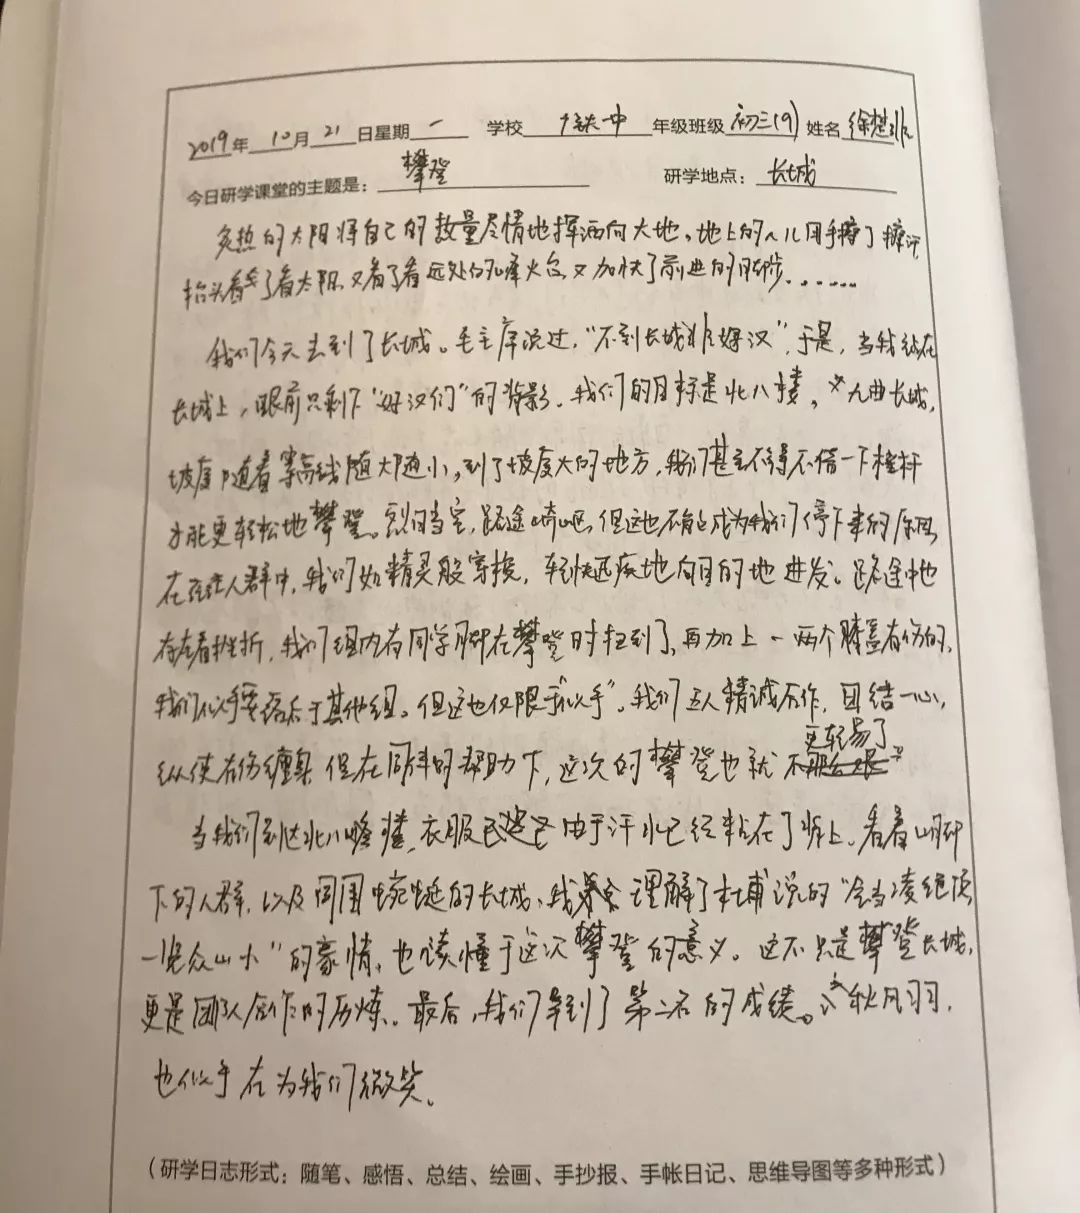 2019年10月21日星期一 学校 铁一中 年级班级 初三(9) 姓名 徐楚
今日研学课堂的主题是: 攀登 研学地点: 长城
炙热的太阳将自己的数量尽情地挥洒向大地,地上的人儿用手擦了擦汗
抬头看了看太阳,又看了看远处的烽火台,又加快了前进的脚步.......
我们今天去到了长城。毛主席说过,“不到长城非好汉”,于是,当我站在
长城上,眼前只剩下“好汉们”的背影。我们的目标是北八楼。九曲长城,
坡度随着等高线随大随小,到了坡度大的地方,我们甚至不得不借一下栏杆
才能更轻松地攀登。烈日当空,路途崎岖,但这也不能成为我们停下来的原因,
在人群中,我们如精灵般穿梭,轻快迅疾地向目的地进发。路途中也
存在着挫折,我们组内有同学脚在攀登时扭到了,再加上一两个膝盖有伤的,
我们似乎要落后于其他组。但这也仅限于“似乎”。我们五人精诚合作,团结一心,
纵使有伤缠身,但在同伴的帮助下,这次的攀登也就更轻易了
当我们到达北八楼,衣服已由于汗水已经粘在了背上。看着山脚
下的人群,以及周围蜿蜒的长城,我理解了杜甫说的“会当凌绝顶
一览众山小”的豪情,也读懂于这次攀登的意义。这不只是攀登长城,
更是团队合作的历炼。最后,我们拿到了第二名的成绩。秋风习习,
也似乎在为我们微笑。
(研学日志形式:随笔、感悟、总结、绘画、手抄报、手帐日记、思维导图等多种形式)